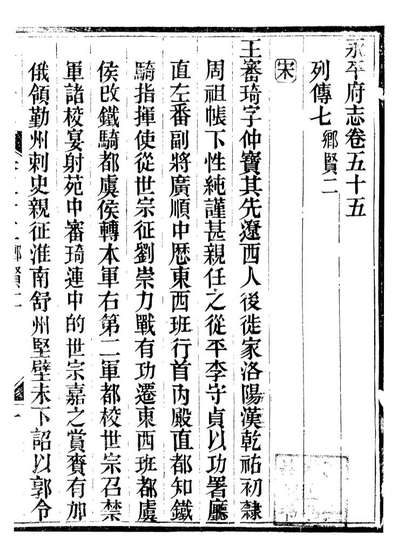 永平府志卷五十五
列傳七 鄉賢二
宋
王審琦字仲寶其先遼西人後徙家洛陽漢乾祐初隸
周祖帳下性純謹甚親任之從平李守貞以功署廳
直左番副將廣順中歷東西班行首內殿直都知鐵
騎指揮使從世宗征劉崇力戰有功遷東西班都虞
侯改鐵騎都虞侯轉本軍右第二軍都校世宗召禁
軍諸校宴射苑中審琦連中的世宗嘉之賞賚有加
俄領勤州刺史親征淮南舒州堅壁未下詔以郭令